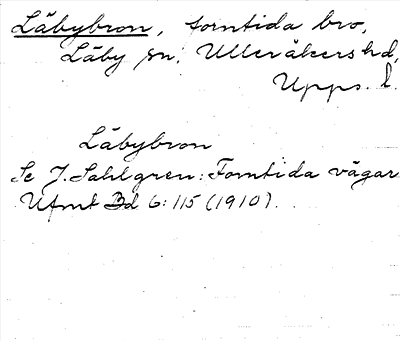 Läbybron, forntida bro,
Läby sn, Ulleråkers hd,
Upps. l.
Läbybron
Se J. Sahlgren: Forntida vägar
Ufmt Bd 6: 115 (1910).